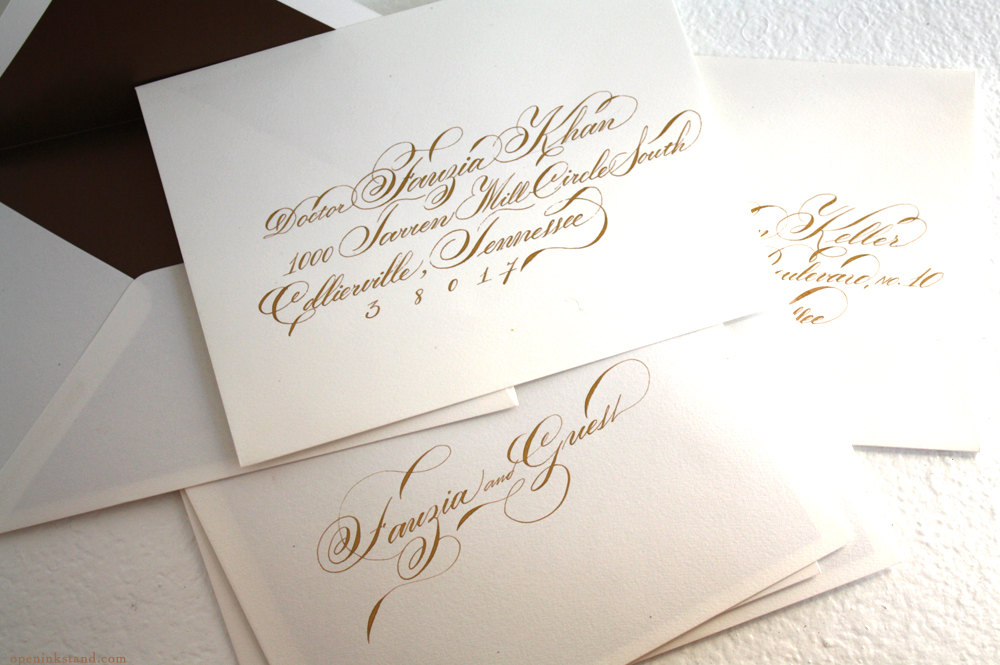 Doctor Fauzia Khan
1000 Tarren Mill Circle South
Collierville, Tennessee
3 8 0 1 7
Keller
No. 10
Fauzia and Guest
openinkstand.com